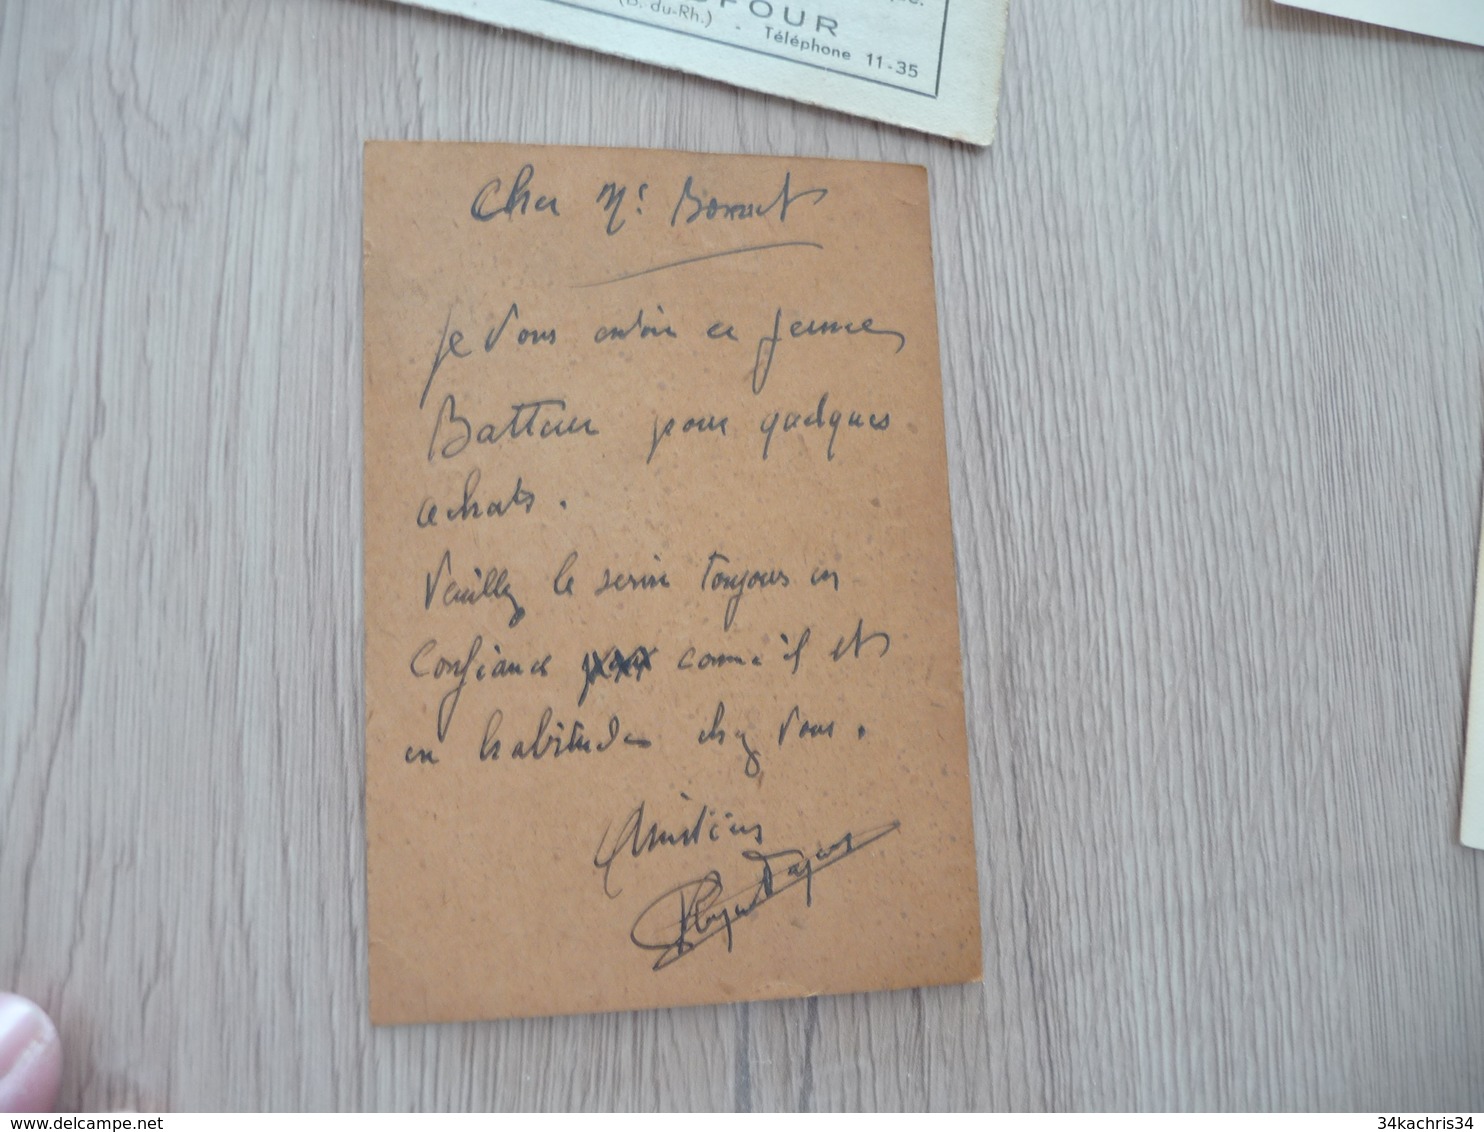 OFOUR
(B. du-Rh.) - Téléphone 11-35
Cher Mr Bonnet
Je vous envoie ce jeune
Batteur pour quelques
achats.
Veuillez le servir toujours en
confiance comme il est
en habitudes chez vous.
Amitiés
34kachris34